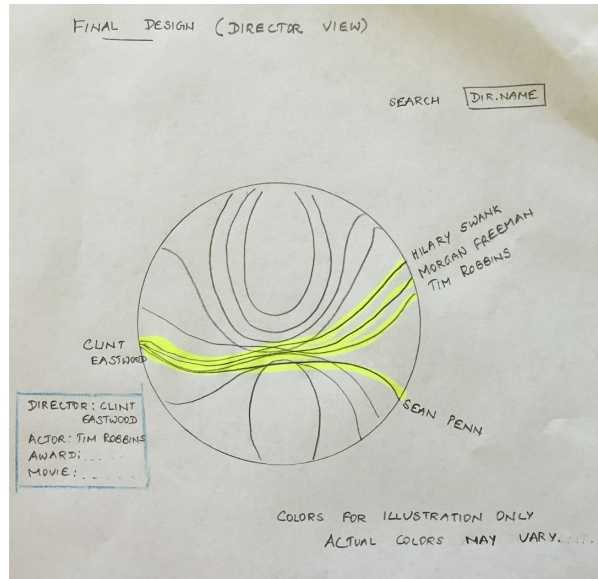 FINAL DESIGN (DIRECTOR VIEW)
SEARCH DIR.NAME
HILARY SWANK
MORGAN FREEMAN
TIM ROBBINS
CLINT
EASTWOOD
SEAN PENN
DIRECTOR: CLINT
EASTWOOD
ACTOR: TIM ROBBINS
AWARD: .....
MOVIE: .....
COLORS FOR ILLUSTRATION ONLY
ACTUAL COLORS MAY VARY.